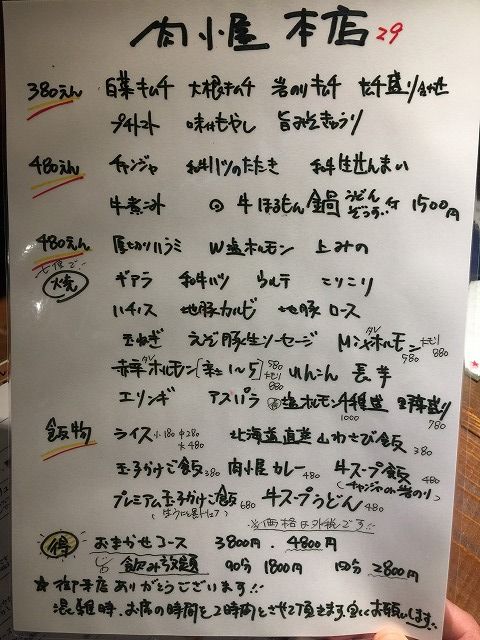 肉小屋 本店 29
380えん 白菜キムチ 大根キムチ 岩のりキムチ キムチ盛り合せ
プチトマト 味付もやし 旨みそきゅうり
480えん チャンジャ 和牛ハツのたたき 和牛生せんまい
牛煮こみ 牛ほるもん鍋 うどん ぞうすい付 1500円
480えん 厚切りハラミ W塩ホルモン 上みの
七厘で!! 焼 ギアラ 和牛ハツ ウルテ コリコリ
ハチノス 地豚カルビ 地豚ロース
玉ねぎ えぞ豚生ソーセージ Mシャホルモン タレ 580 大もり 880
赤辛ホルモン タレ [辛さ1〜5] 580 大もり 880 いんこん 長芋
エリンギ アスパラ 塩ホルモン4種盛 1000 野菜盛り 780
飯物 ライス 小180 中280 大480 北海道直送山わさび飯 380
玉子かけご飯 380 肉小屋カレー 480 牛スープ飯 480
(チャンジャor岩のり)
プレミアム玉子かけご飯 680 牛スープうどん 480
※価格は外税です!!
得 おまかせコース 3800円・4800円
飲み放題 90分 1800円 120分 2800円
★御来店ありがとうございます!!
混雑時、お席の時間を2時間とさせて頂きます。宜しくお願いします。